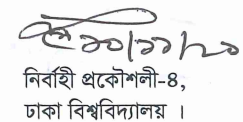 নির্বাহী প্রকৌশলী-8,
ঢাকা বিশ্ববিদ্যালয় ।